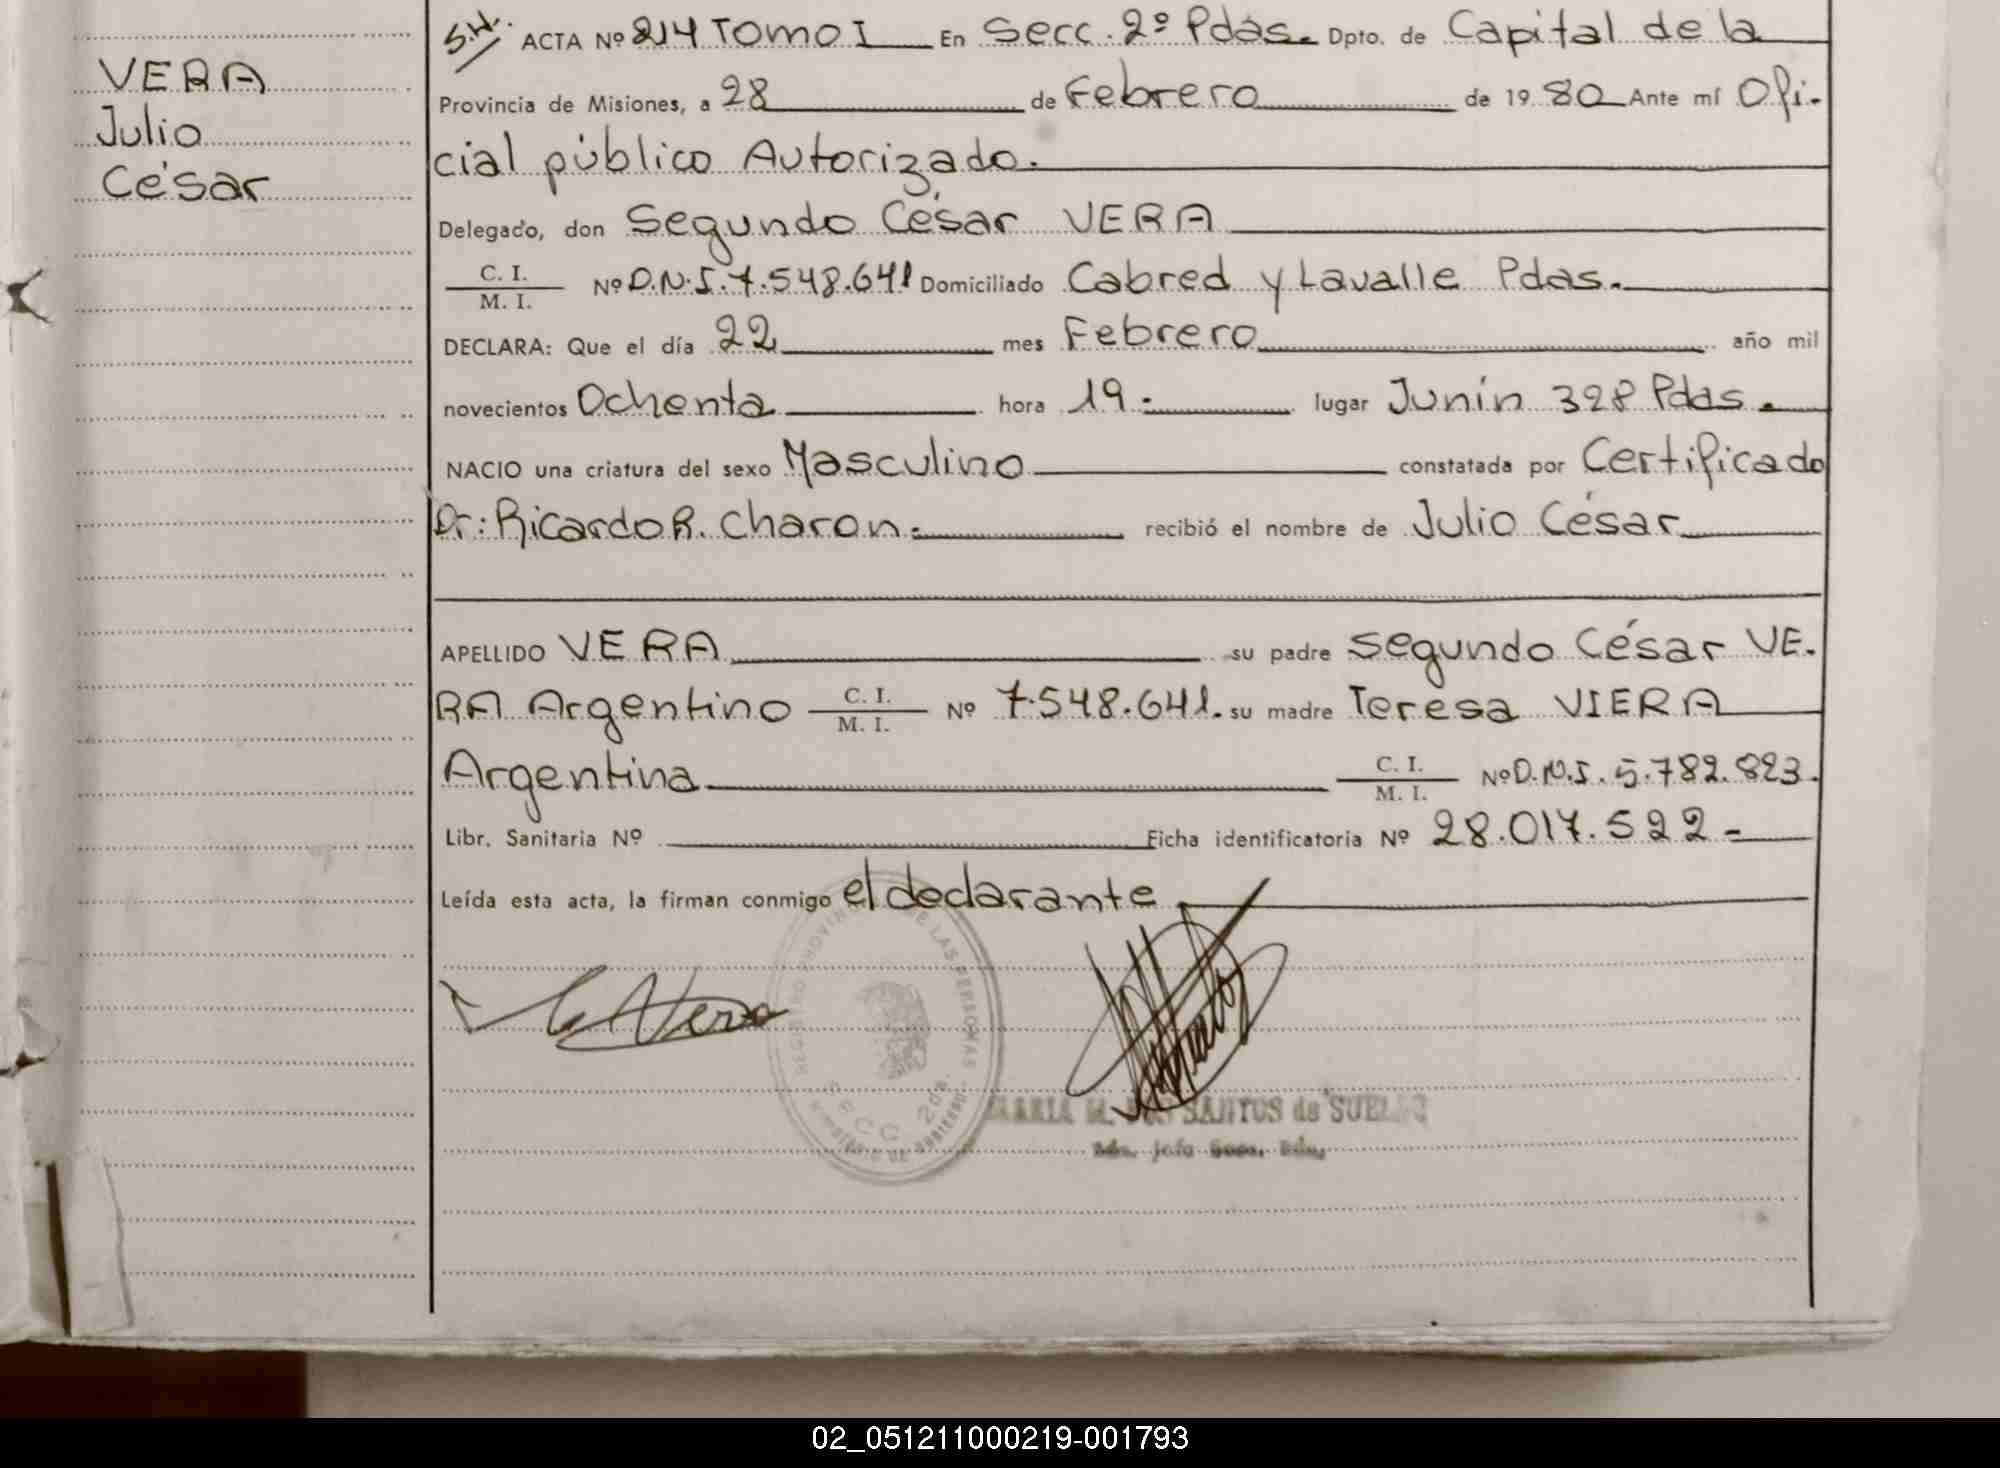 VERA
Julio
César
S.W. ACTA Nº 214 Tomo I En Secc. 2º Pdas. Dpto. de Capital de la
Provincia de Misiones, a 28 de Febrero de 1980 Ante mí Ofi-
cial público Autorizado.
Delegado, don Segundo César VERA
C. I.
M. I. Nº D.N.I. 7.548.641 Domiciliado Cabred y Lavalle Pdas.
DECLARA: Que el día 22 mes Febrero año mil
novecientos Ochenta hora 19.- lugar Junín 328 Pdas.
NACIO una criatura del sexo Masculino constatada por Certificado
Dr: Ricardo R. Charon.- recibió el nombre de Julio César
APELLIDO VERA su padre Segundo César VE-
RA Argentino C. I.
M. I. Nº 7.548.641. su madre Teresa VIERA
Argentina C. I.
M. I. Nº D.N.I. 5.782.823.
Libr. Sanitaria Nº Ficha identificatoria Nº 28.017.522-
Leída esta acta, la firman conmigo el declarante
Vera
REGISTRO PROVINCIAL DE LAS PERSONAS
Secc 2da.
MARIA M. DOS SANTOS de SUELDO
02_051211000219-001793